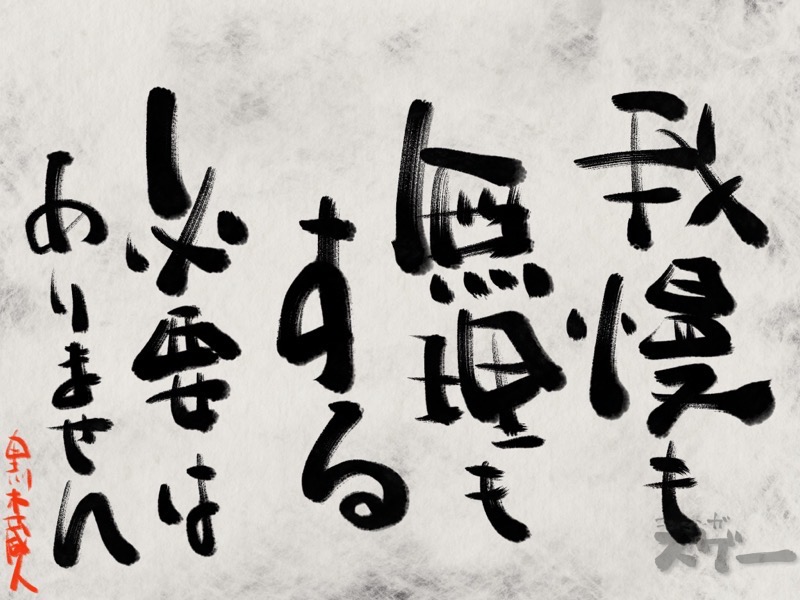 我慢も
無理も
する
必要は
ありません
スゲー